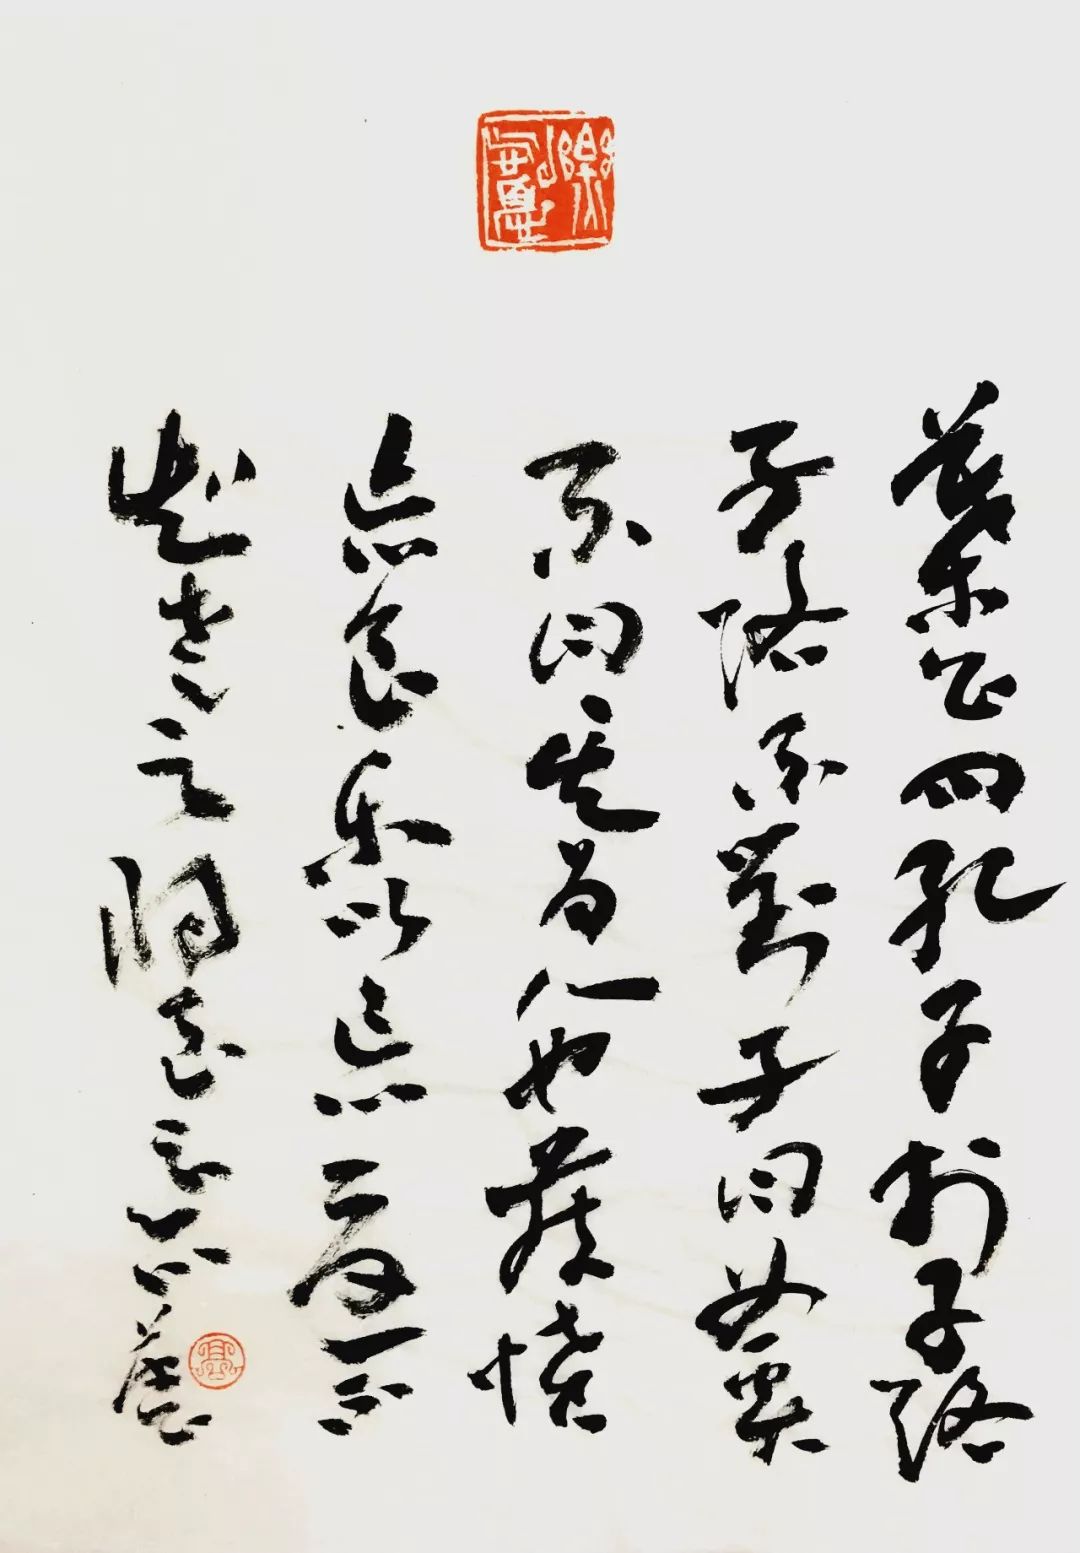 葉公問孔子於子路
子路不對子曰女奚
不曰其為人也發憤
忘食樂以忘憂不
知老之將至云爾